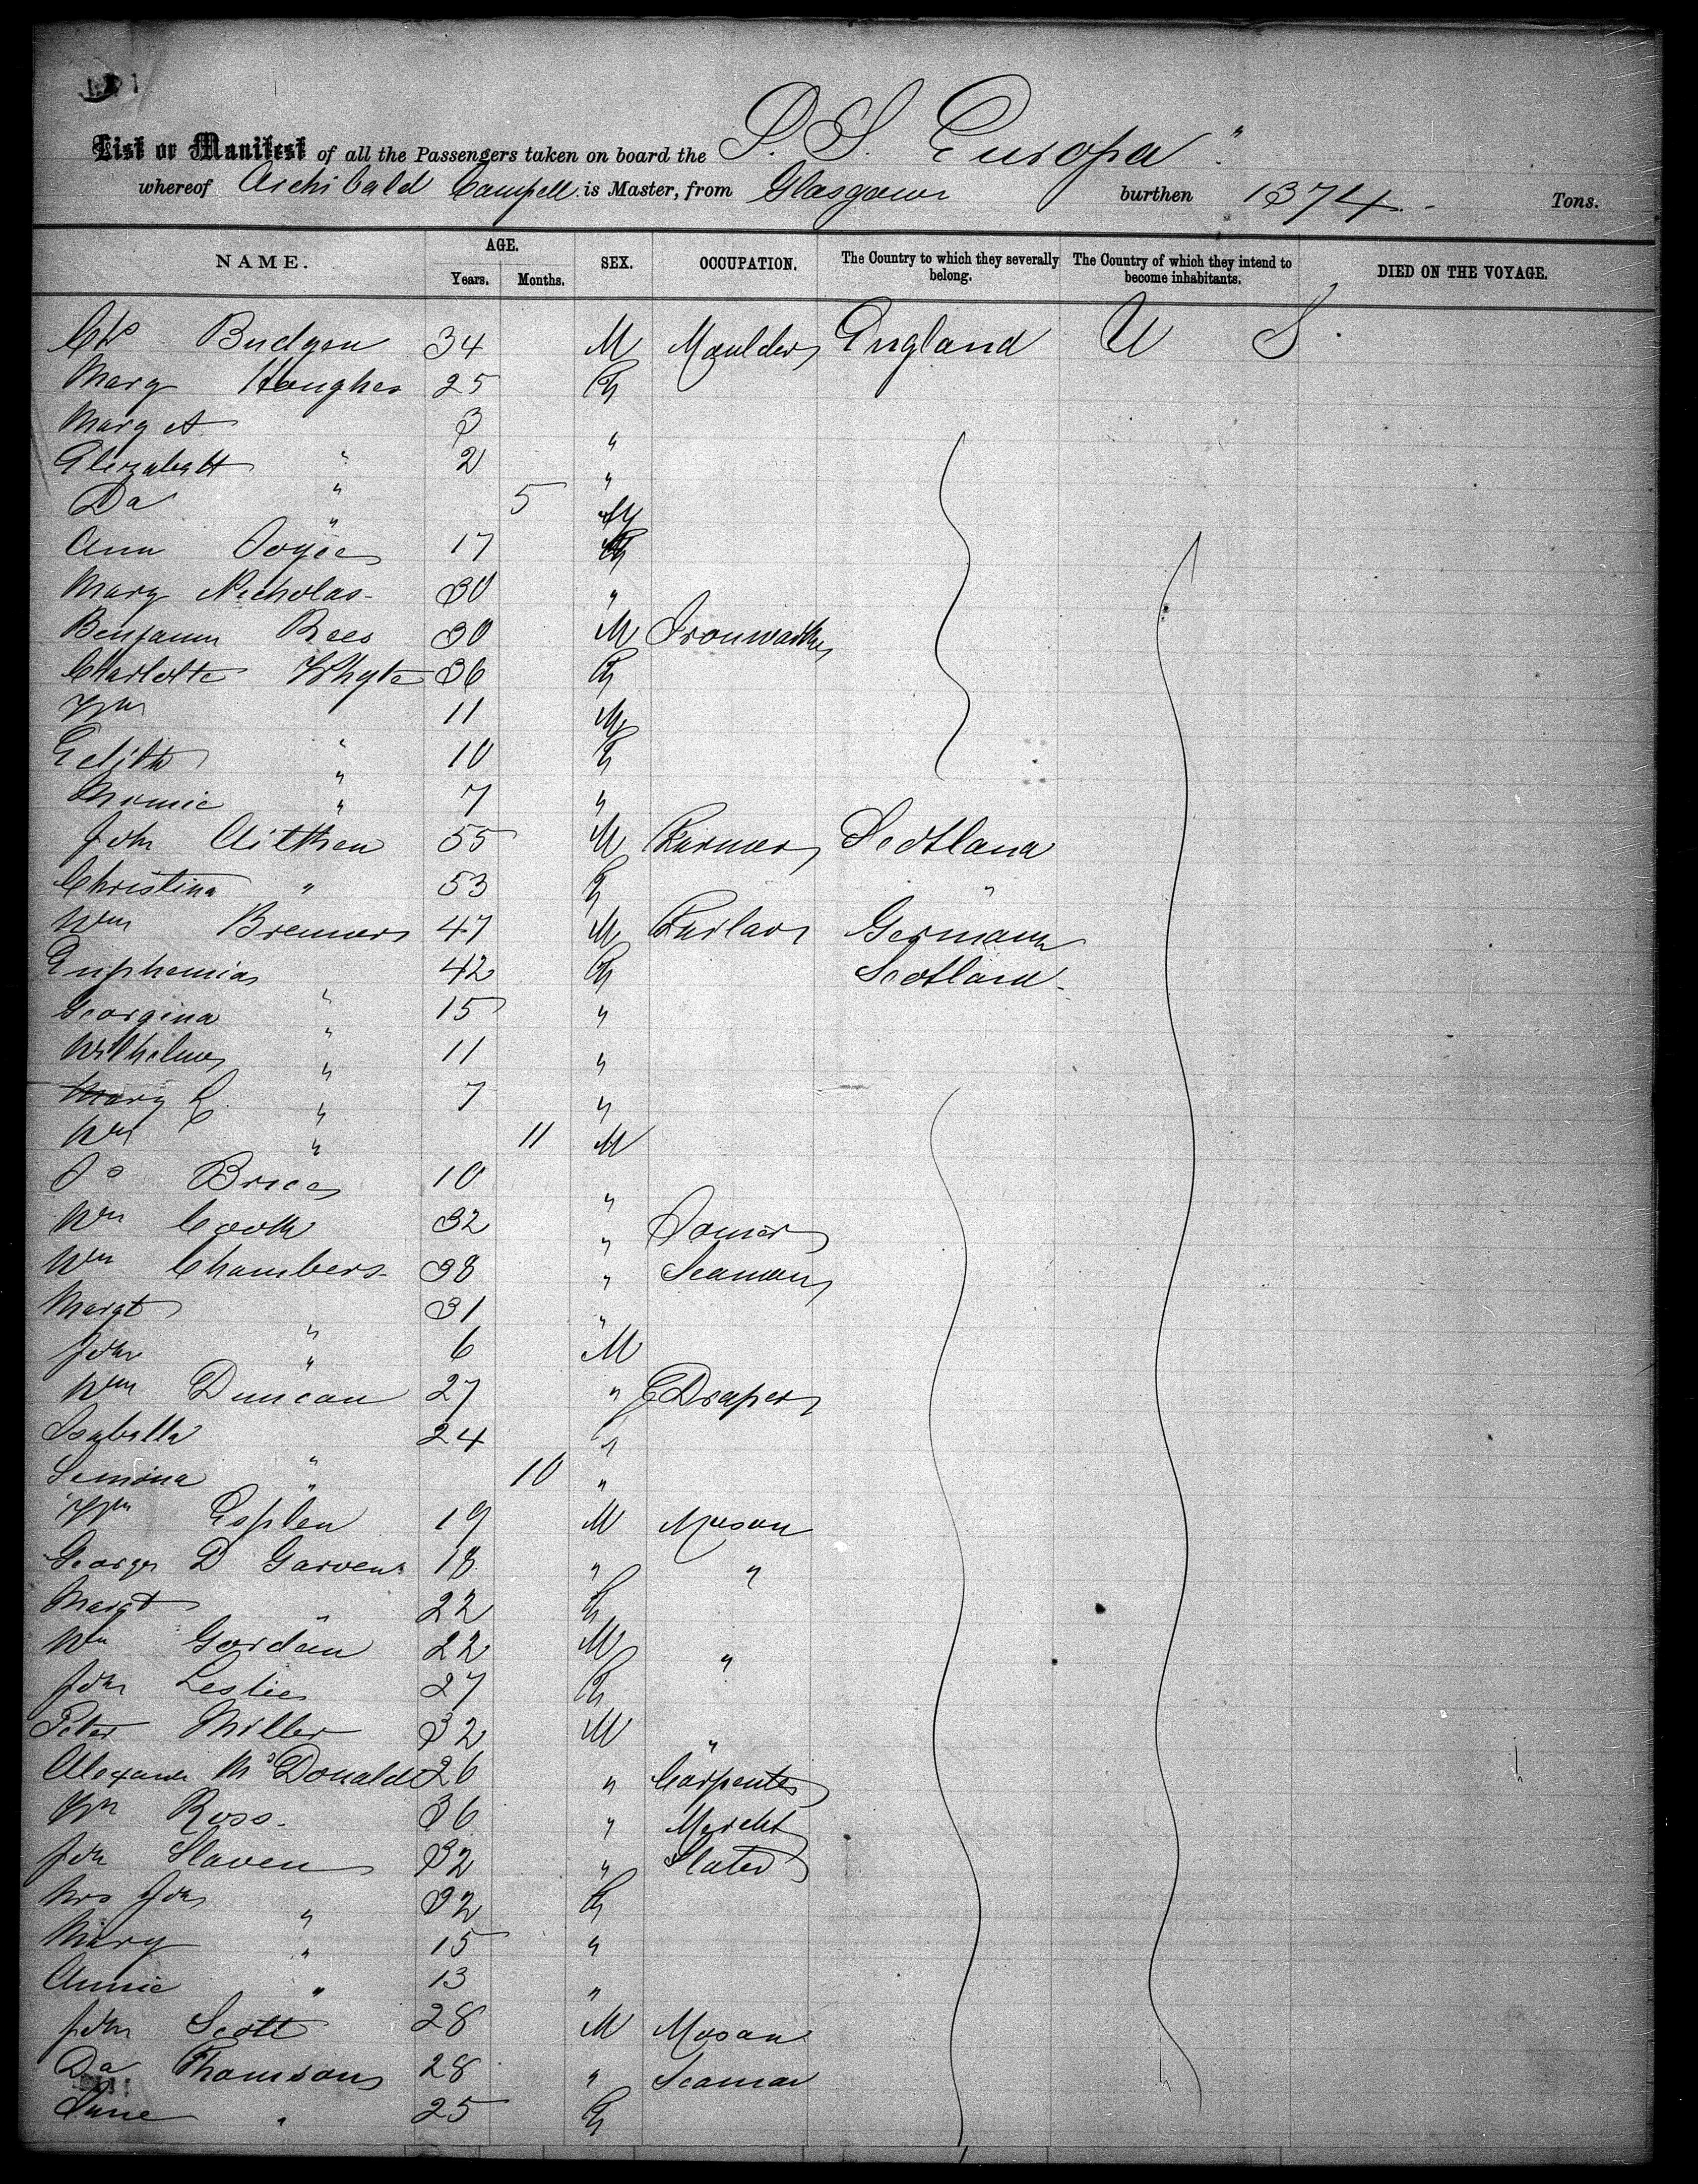 List or Manifest of all the Passengers taken on board the S. S. Europa"
whereof Archibald Campell is Master, from Glasgow burthen 1374 Tons.
NAME. AGE. Years. Months. SEX. OCCUPATION. The Country to which they severally belong. The Country of which they intend to become inhabitants. DIED ON THE VOYAGE.
Chs Budgen 34 M Moulder England U S.
Mary Houghes 25 F
Mary A " 3 "
Elizabeth " 2 "
Da " 5 M
Ann Joyce 17 F
Mary Nicholas 30 "
Benjamin Rees 30 M Ironworker
Charlotte Whyte 36 F
Wm " 11 M
Edith " 10 F
Minnie " 7 "
John Aitken 55 M Farmer Scotland
Christina " 53 F "
Wm Bremner 47 M Germany
Euphemia " 42 F Scotland
Georgina " 15 "
Wilhelma " 11 "
Mary " 7 "
Wm " 11 M
Js Brice 10 "
Wm Cook 32 " Joiner
Wm Chambers 38 " Seaman
Margt " 31 "
John " 6 M
Wm Duncan 27 " Draper
Isabella " 24 F
Jemima " 10 "
Wm Esplen 19 M Mason
George D Garven 18 " "
Margt " 22 F
Wm Gordon 22 M "
John Leslie 27 F
Peter Miller 32 M "
Alexander McDonald 26 " Carpenter
Wm Ross 36 " Mercht
John Slaven 32 " Slater
Mrs John " 32 F
Mary " 15 "
Annie " 13 "
John Scott 28 M Mason
Da Thomson 28 " Seaman
Jane " 25 F